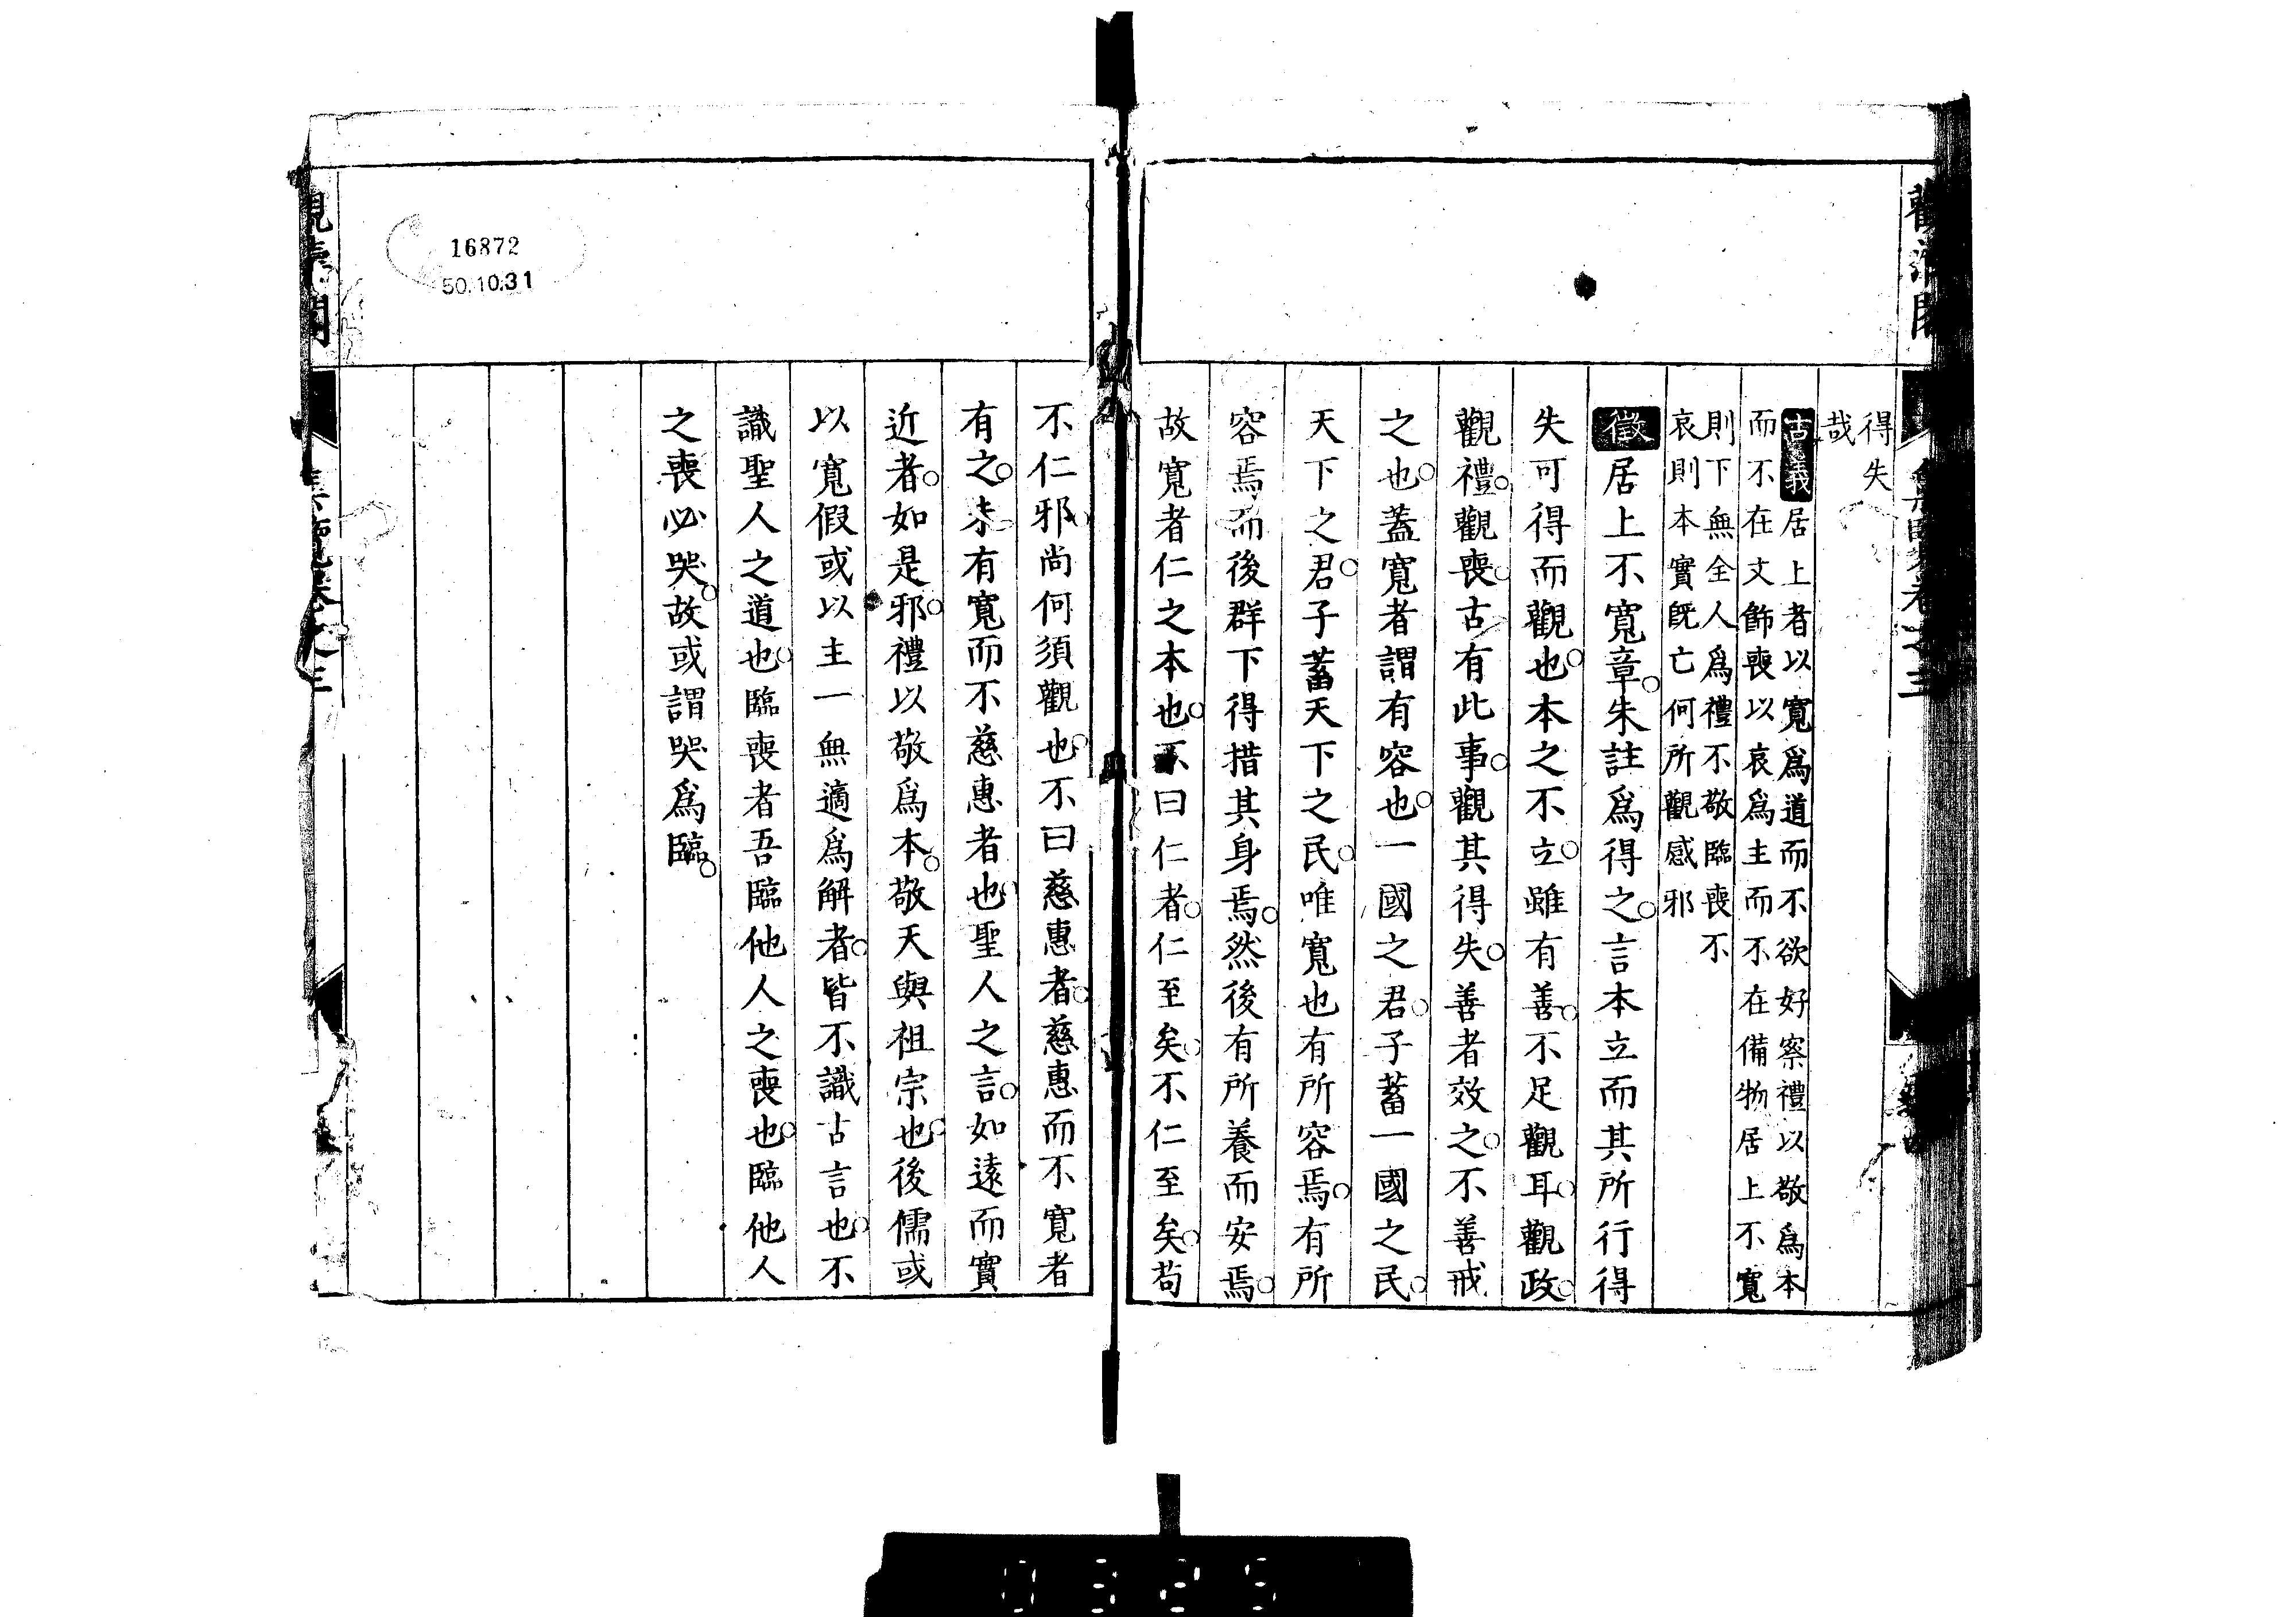 得失
哉
古義居上者以寬爲道而不欲好察禮以敬爲本
而不在文飾喪以哀爲主而不在備物居上不寬
則下無全人爲禮不敬臨喪不
哀則本實旣亡何所觀感邪
徵居上不寬章朱註爲得之言本立而其所行得
失可得而觀也本之不立雖有善不足觀耳觀政
觀禮觀喪古有此事觀其得失善者效之不善戒
之也蓋寬者謂有容也一國之君子蓄一國之民
天下之君子蓄天下之民唯寬也有所容焉有所
容焉而後群下得措其身焉然後有所養而安焉
故寬者仁之本也不曰仁者仁至矣不仁至矣苟
不仁邪尚何須觀也不曰慈惠者慈惠而不寬者
有之未有寬而不慈惠者也聖人之言如遠而實
近者如是邪禮以敬爲本敬天與祖宗也後儒或
以寬假或以主一無適爲解者皆不識古言也不
識聖人之道也臨喪者吾臨他人之喪也臨他人
之喪必哭故或謂哭爲臨
16872
50.10.31
0325